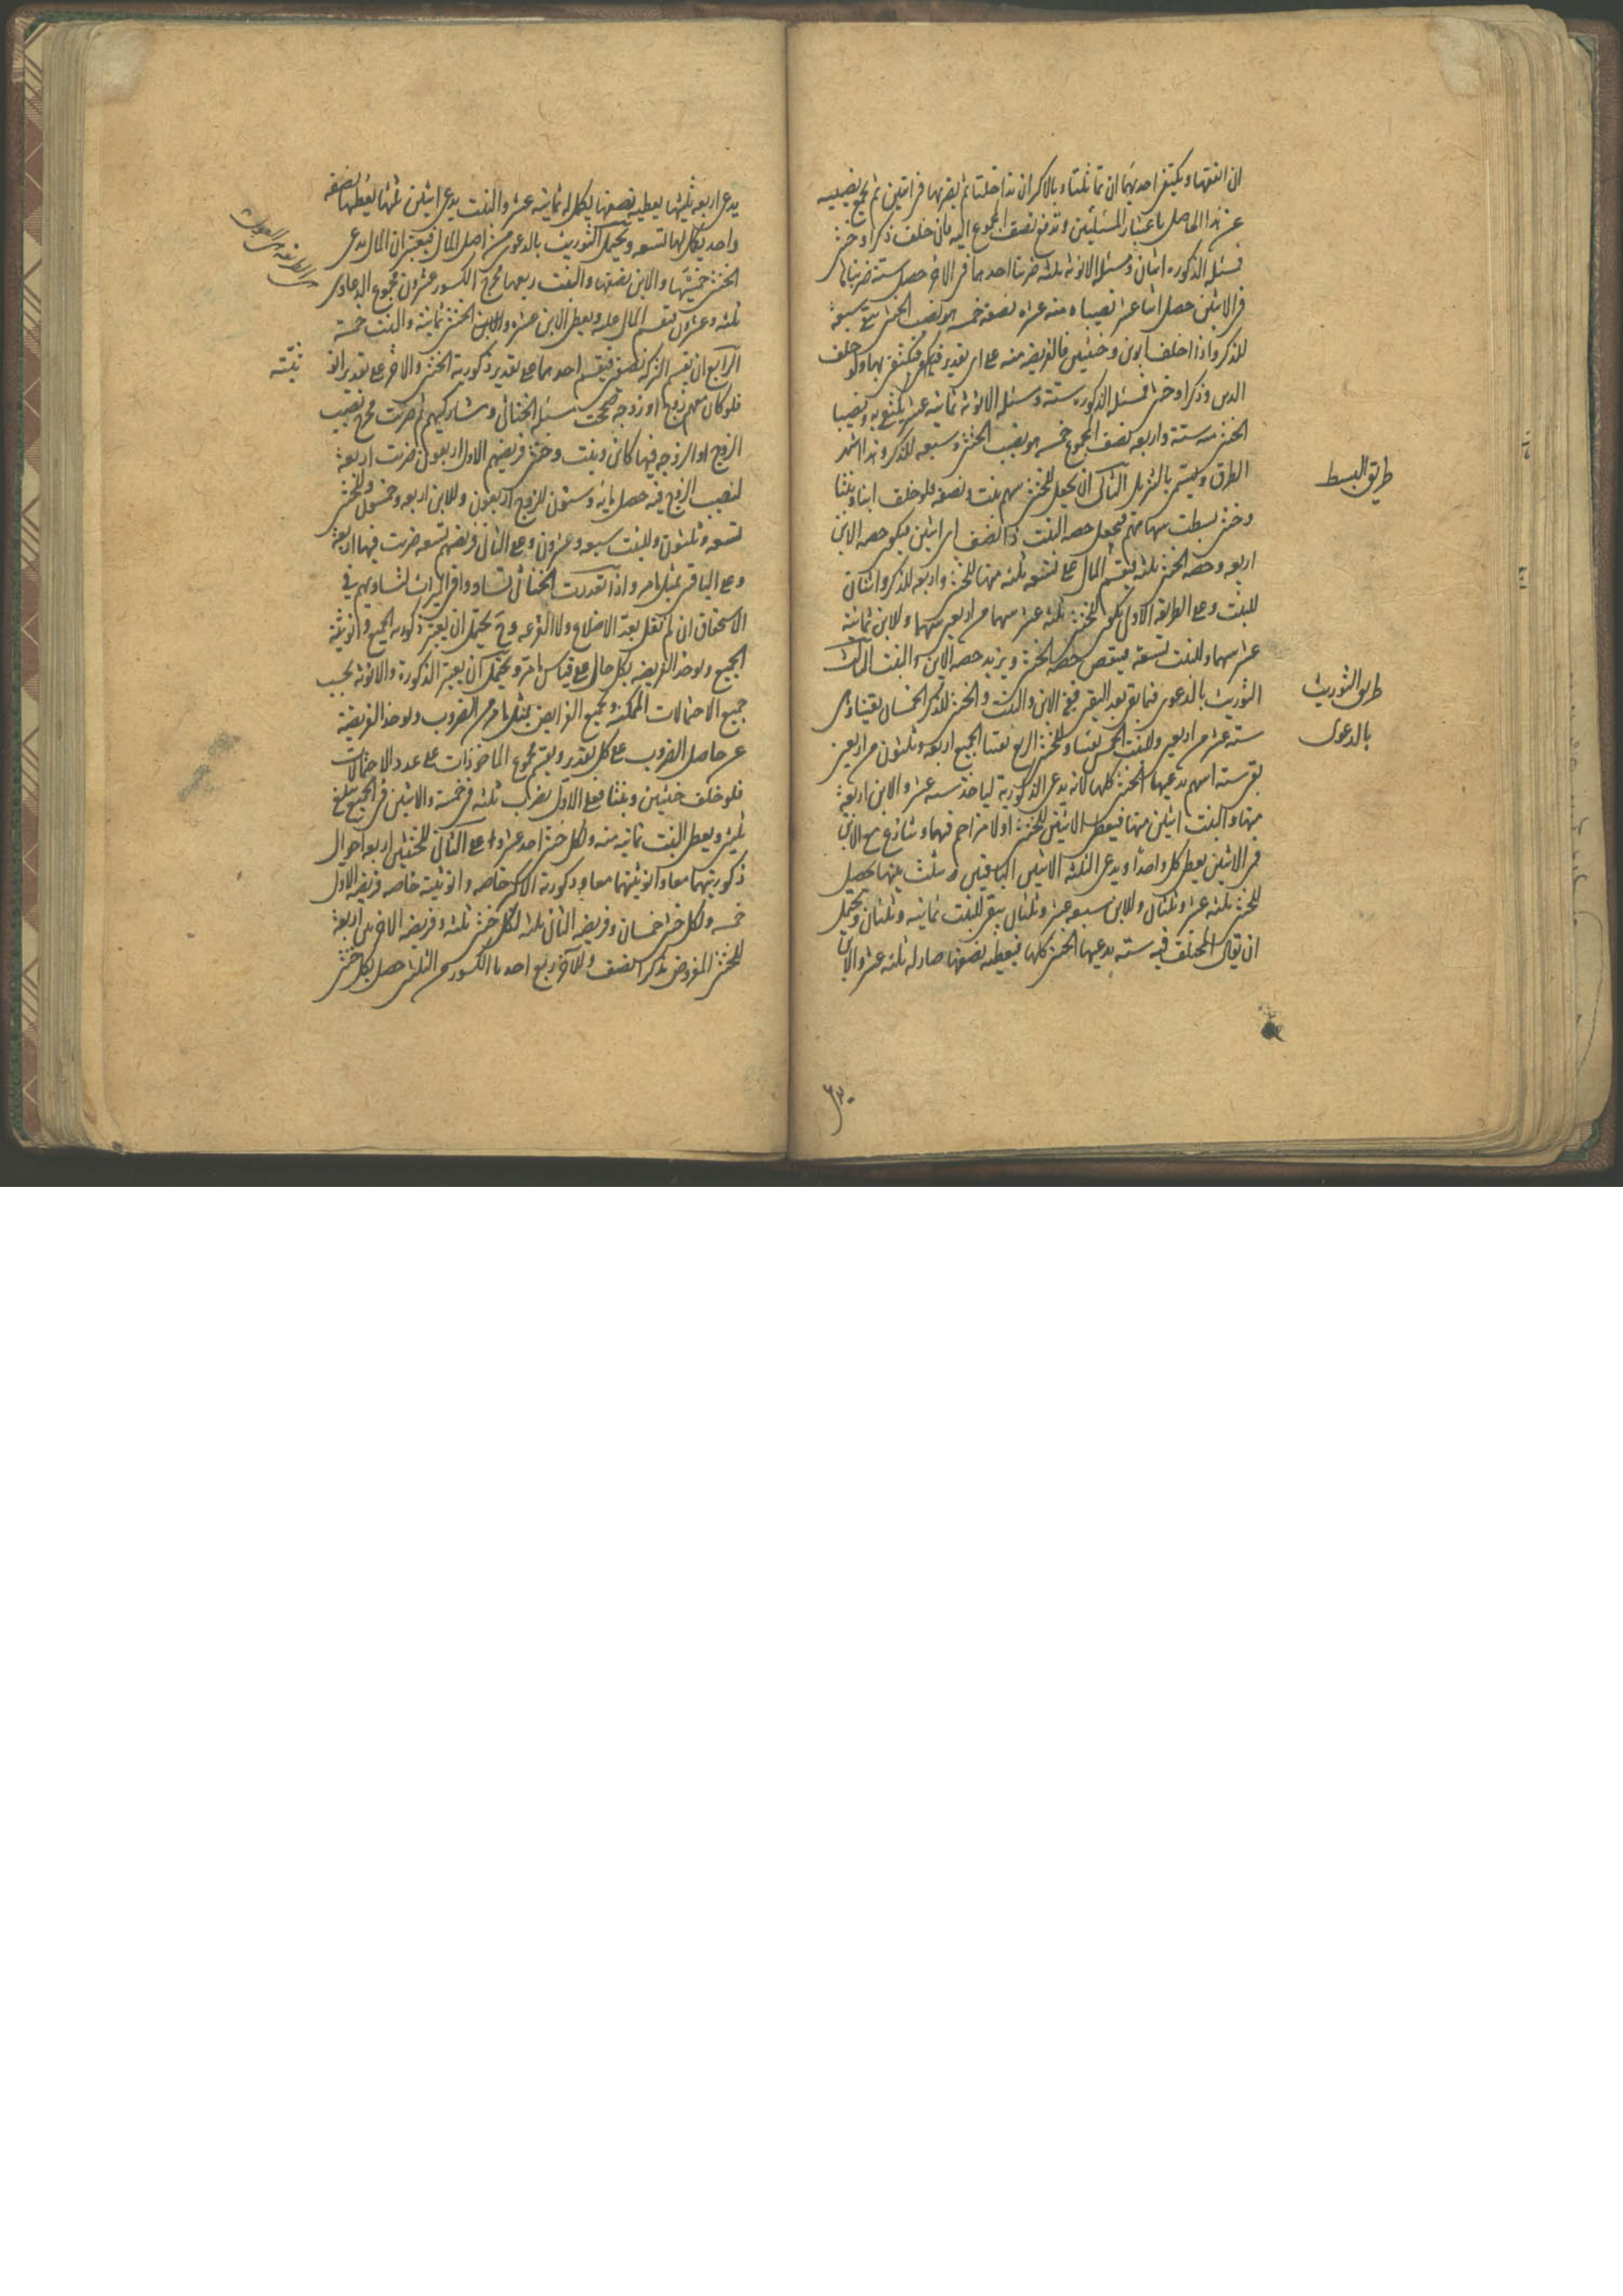 ان اتفقتا ويكتفى احديهما ان تماثلتا وبالاكثر ان تداخلتا ثم يضربها فى اثنين ثم تجمع نصيبيه
عن هذا الحاصل باعتبار المسئلتين وتدفع نصف المجموع اليه فان خلف ذكرا وخنثى
فمسئلة الذكوره اثنان ومسئلة الانوثه ثلثه ضربنا احديهما فى الاخر حصل ستة ضربناها
فى الاثنين حصل اثنا عشر نصيباه منه عشره نصفه خمسه هو نصيب الخنثى يبقى سبعه
للذكر واذا خلف ابوين وخنثيين فالفريضه منه على اى تقدير فيكتفى بها ولو خلف
ابوين وذكرا وخنثى فمسئلة الذكوره ستة ومسئلة الانوثه ثمانيه عشر يكتفى به ونصيبا
الخنثى منه ستة واربعه نصف المجموع خمسه هو نصيب الخنثى وسبعه للذكر وهذا اشهر
الطرق ويسمى بالتنزيل الثانى ان يجعل للخنثى سهم بنت ونصفه فلو خلف ابنا وبنتا
وخنثى بسطت سهامهم فيجعل حصه البنت ذا نصف اى اثنين فيكون حصه الابن
اربعه وحصه الخنثى ثلثه يقسم المال على تسعه ثلثه منها للخنثى واربعه للذكر واثنان
للبنت وعلى الطريقه الاولى يكون للخنثى ثلثه عشر سهما من اربعين سهما وللابن ثمانيه
عشر سهما وللبنت تسعة فينقص حصه الخنثى ويزيد حصه الابن والبنت الثالث
التوريث بالدعوى فيما بقى بعد اليقين ففى الابن والبنت والخنثى للذكر الخمسان يقينا وهى
سته عشر من اربعين وللبنت الخمس يقينا وللخنثى الربع يقينا الجميع اربعه وثلثون من اربعين
بقى ستة اسهم يدعيها الخنثى كلها لانه يدعى الذكورية ليأخذ ستة عشر والابن اربعه
منها والبنت اثنين منها فيعطى الاثنين للخنثى اذ لا مزاحم فيهما وتنازع مع الابن
فى الاثنين يعطى كل واحدا ويدعى الثلثه الاثنين الباقيين فيثلث بينها يحصل
للخنثى ثلثه عشر وثلثان وللابن سبعه عشر وثلثان يبقى للبنت ثمانيه وثلثان ويحتمل
ان يقال المختلف فيه سته يدعيها الخنثى كلها فيعطيه نصفها صار له ثلثه عشر والابن
طريق البسط
طريق التوريث
بالدعوى
٦٣٠
يدعى اربعه ثلثيها يعطيه نصفها يكمل له ثمانيه عشر والبنت يدعى اثنين ثلثها يعطيها نصفه
واحد يكمل لها تسعه ويحتمل التوريث بالدعوى من اصل المال فيعتبر ان المال يدعى
الخنثى خمسيها والابن نصفها والبنت ربعها مخرج الكسور عشرون مجموع الدعاوى
ثلثه وعشرون فيقسم المال عليه ويعطى الابن عشره والخنثى ثمانية والبنت خمسة
الرابع ان يقسم التركه نصفين فيقسم احدهما على تقدير ذكورية الخنثى والاخر على تقدير انو
ثيّته
فلو كان معهم زوج او زوجه صححت مسئلة الخناثى ومشاركيهم ثم ضربت مخرج نصيب
الزوج او الزوجه فيها كابن وبنت وخنثى فريضهم الاول اربعون ضربت اربعه
لنصيب الزوج فيه حصل مائة وستون للزوج اربعون وللابن اربعه وخمسون وللخنثى
تسعه وثلثون وللبنت سبعه وعشرون وعلى الثانى فريضهم تسعه ضربت فيها اربعة
وعلى الباقى بمثل ما مر واذا تعددت الخناثى تساووا فى الميراث لتساويهم فى
الاستحقاق ان لم نقل بعد الاضلاع ولا القرعه وح يحتمل ان يعتبر ذكورية الجميع وانوثية
الجميع ويوخذ الفريضه بكل حال على قياس ما مر ويحتمل ان يعتبر الذكورة والانوثه بحسب
جميع الاحتمالات الممكنة وتجمع الفرايض بمثل ما مر من الضروب ويوخذ الفريضة
عن حاصل الضروب على كل تقدير ويقسم مجموع الماخوذات على عدد الاحتمالات
فلو خلف خنثيين وبنتا فعلى الاول يضرب ثلثه فى خمسة والاثنين فى الجميع يبلغ
ثلثين ويعطى البنت ثمانيه منه ولكل خنثى احد عشر وعلى الثانى للخنثيين اربعه احوال
ذكوريتهما معا وانوثيتهما معا وذكورية الاكبر خاصه وانوثيته خاصه فريضه الاول
خمسه ولكل خنثى خمسان وفريضه الثانى ثلثه لكل خنثى ثلثه وفريضه الاخريين اربعة
للخنثى المفروض ذكرا نصف وللاخر ربع احدنا الكسور من الثلثين حصل لكل خنثى